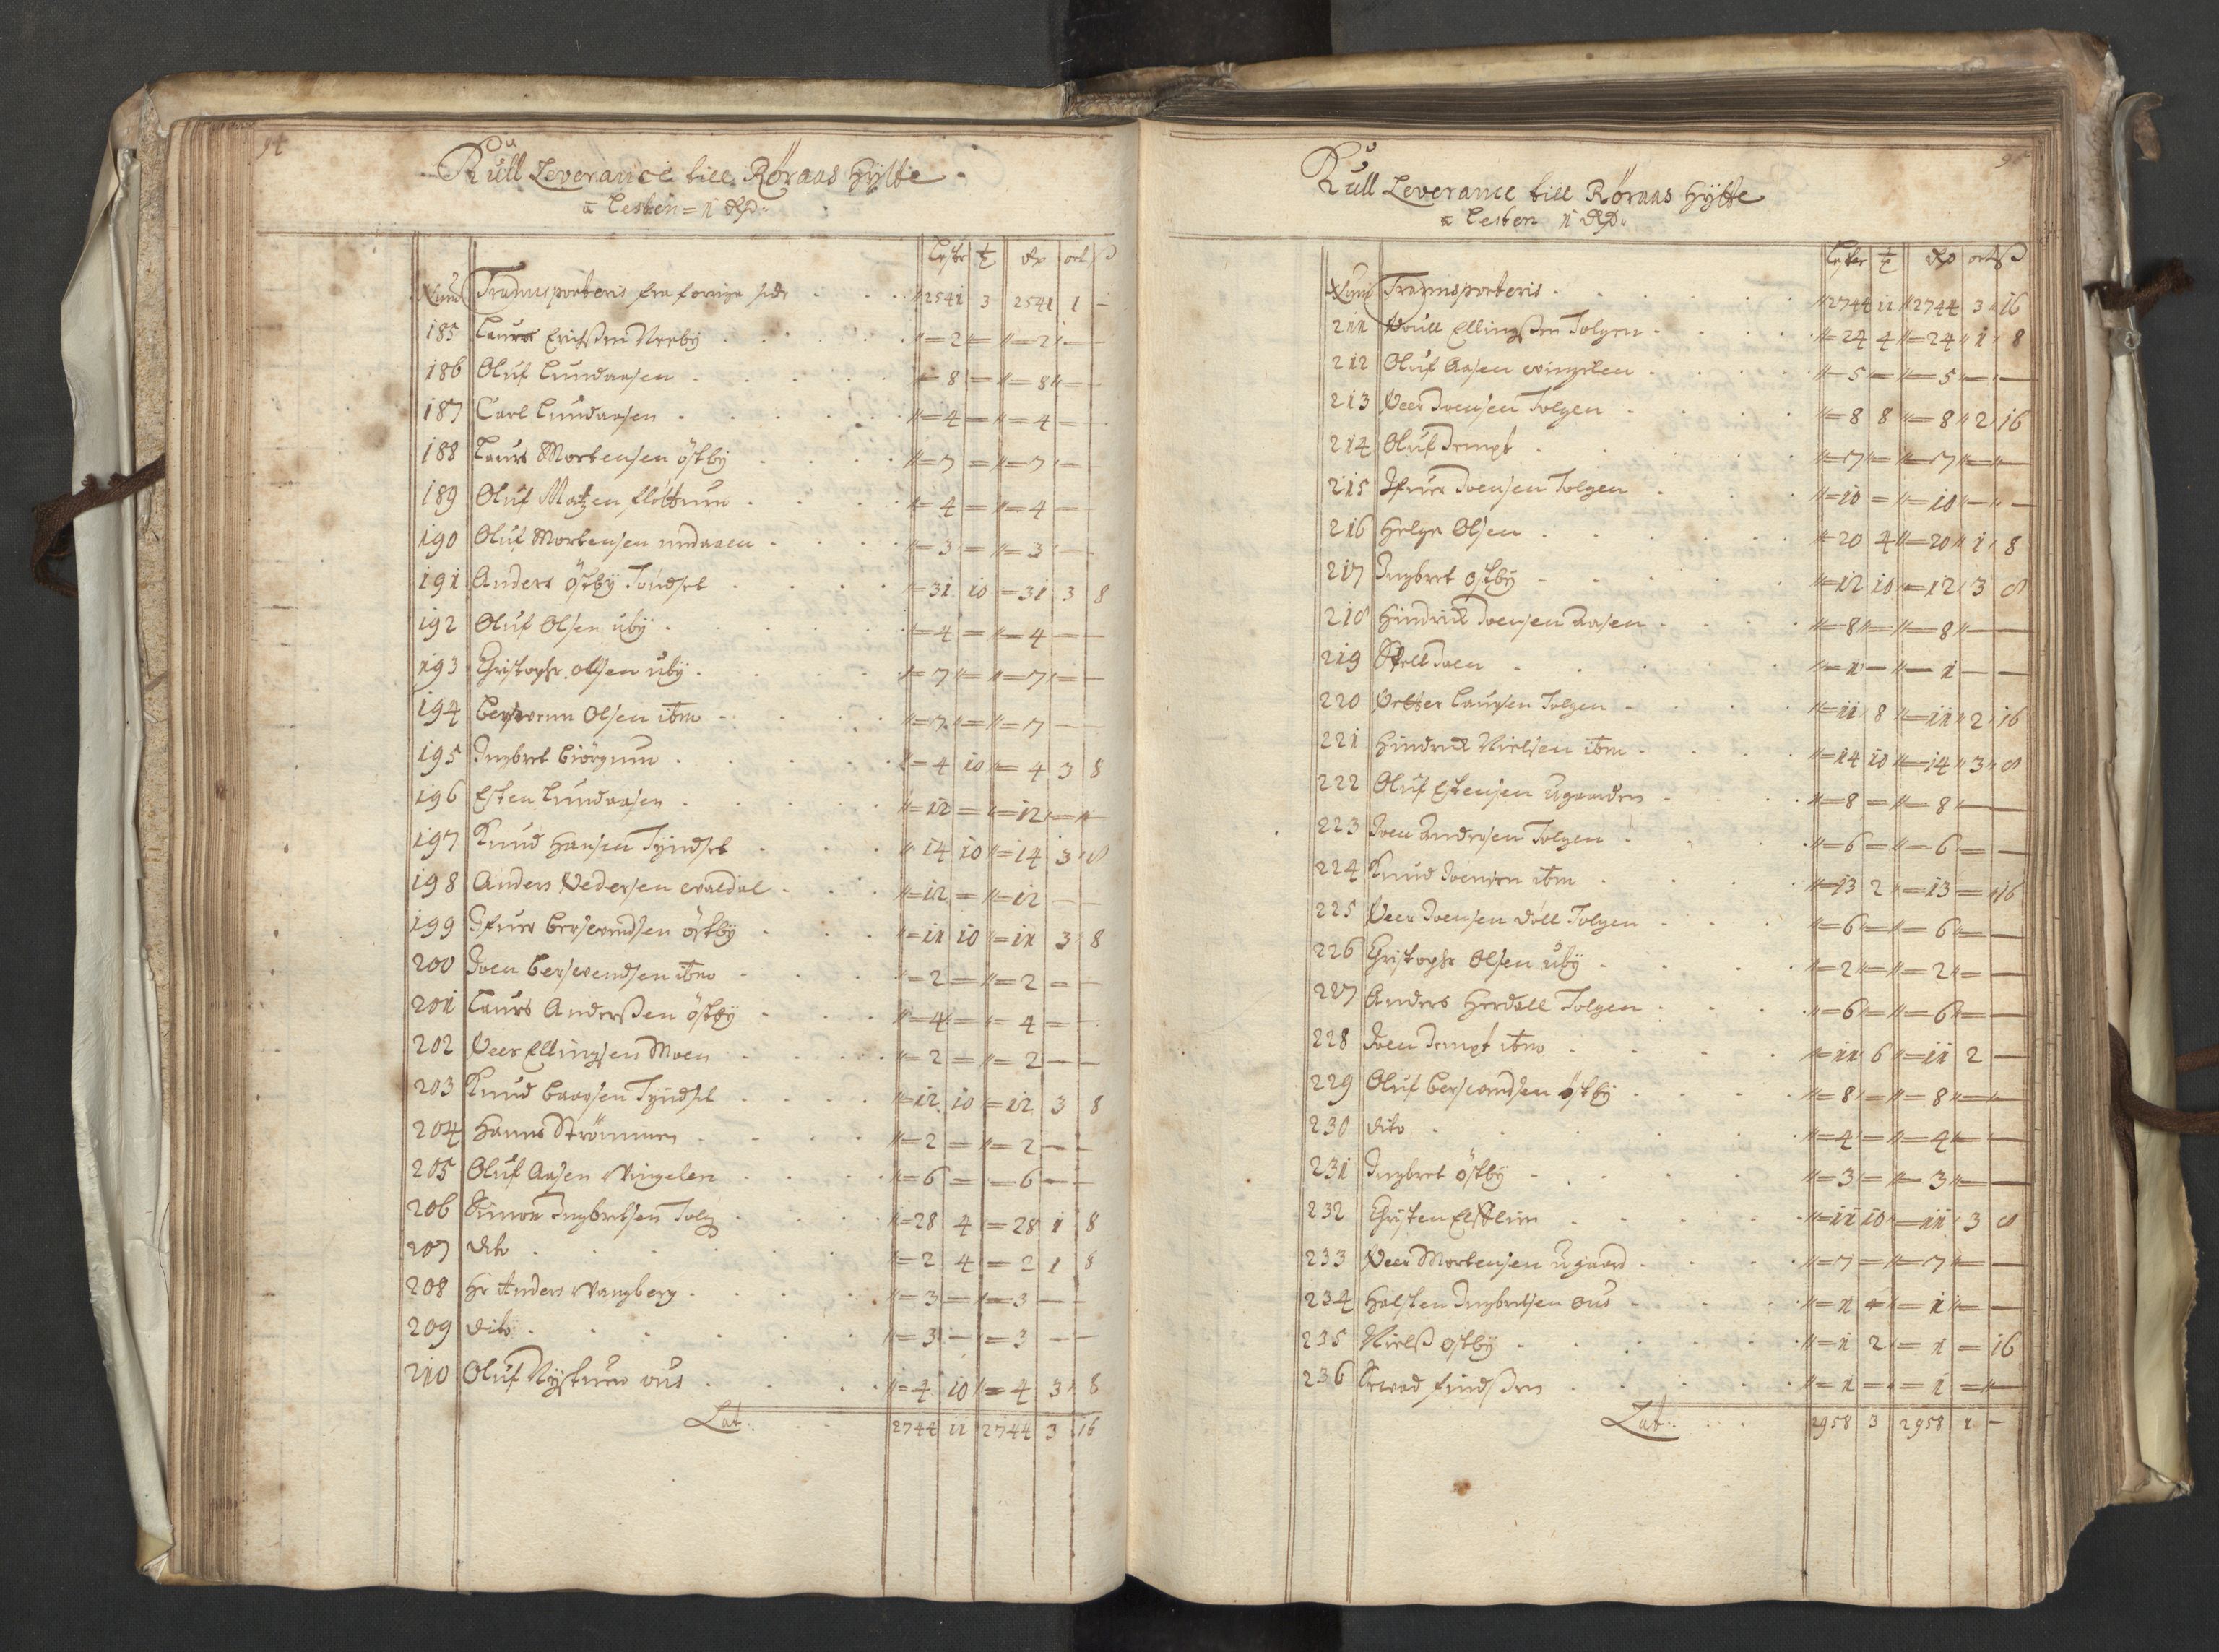 94
Kull Leverance till Røraas Hÿtte
a Lesten = 1 Rdr:
Lester 1/12 Rdr ort ß
Num Transporteris fra forrige side 2541 3 2541 1 –
185 Laurs Erichsen Neebÿ 2 = 2 –
186 Oluf Lundaasen 8 = 8 –
187 Carl Lundaasen 4 = 4 –
188 Laurs Mortensen östbÿ 7 = 7 –
189 Oluf Matzen flöttum 4 = 4 –
190 Oluf Mortensen 3 = 3 –
191 Anders östbÿ Tóndsel 31 10 31 3 8
192 Oluf Olsen übÿ 4 = 4 –
193 Christopher olsen übÿ 7 = 7 –
194 Berswenn Olsen itm 7 = 7 –
195 Ingbret Biörgum 4 10 4 3 8
196 Esten Lundaasen 12 = 12 –
197 Knud Hansen Tÿndsel 14 10 14 3 8
198 Anders Pedersen 12 = 12 –
199 Ifuer Berswendsen östbÿ 11 10 11 3 8
200 Joen Berswendsen itm 2 = 2 –
201 Laurs Anderßen östbÿ 4 = 4 –
202 Peer Ellingsen Moen 2 = 2 –
203 Knud Baarsen Tÿndsel 12 10 12 3 8
204 Hanns Strömmen 2 = 2 –
205 Oluf Aasen Vingelen 6 = 6 –
206 Simon Ingbretsen Tolg 28 4 28 1 8
207 dito 2 4 2 1 8
208 Hr Anders Vangberg 3 = 3 –
209 dito 3 – 3 –
210 Oluf Nÿstuen ous 4 10 4 3 8
Lat: 2744 11 2744 3 16
95
Kull Leverance till Røraas Hÿtte
a Lesten 1 Rdr:
Lester 1/12 Rdr ort ß
Num Transporteris 2744 11 2744 3 16
211 Poull Ellingßen Tolgen 24 4 24 1 8
212 Oluf Aasen vingelen 5 = 5 –
213 Peer Joensen Tolgen 8 8 8 2 16
214 Oluf Jempt 7 = 7 –
215 Ifuer Joensen Tolgen 10 = 10 –
216 Helge Olsen 20 4 20 1 8
217 Ingbret östbÿ 12 10 12 3 8
218 Hindrick Joensen Aasen 8 = 8 –
219 Joen 1 – 1 –
220 Petter Laursen Tolgen 11 8 11 2 16
221 Hindrick Nielsen itm 14 10 14 3 8
222 Oluf Estensen ugaarden 8 = 8 –
223 Joen Andersen Tolgen 6 = 6 –
224 Knud Joensen itm 13 2 13 = 16
225 Peer Joensen döll Tolgen 6 = 6 –
226 Christopher Olsen übÿ 2 = 2 –
227 Anders Herdall Tolgen 6 = 6 –
228 Joen Jempt itm 11 6 11 2 –
229 Oluf Berswendsen östbÿ 8 = 8 –
230 dito 4 = 4 –
231 Ingbret östbÿ 3 = 3 –
232 Christen 11 10 11 3 8
233 Peer Mortensen ugaard 7 = 7 –
234 Halsten Ingbretsen ous 1 = 1 –
235 Nielß östbÿ 1 2 1 = 16
236 findßen 1 = 1 –
Lat: 2958 3 2958 1 –